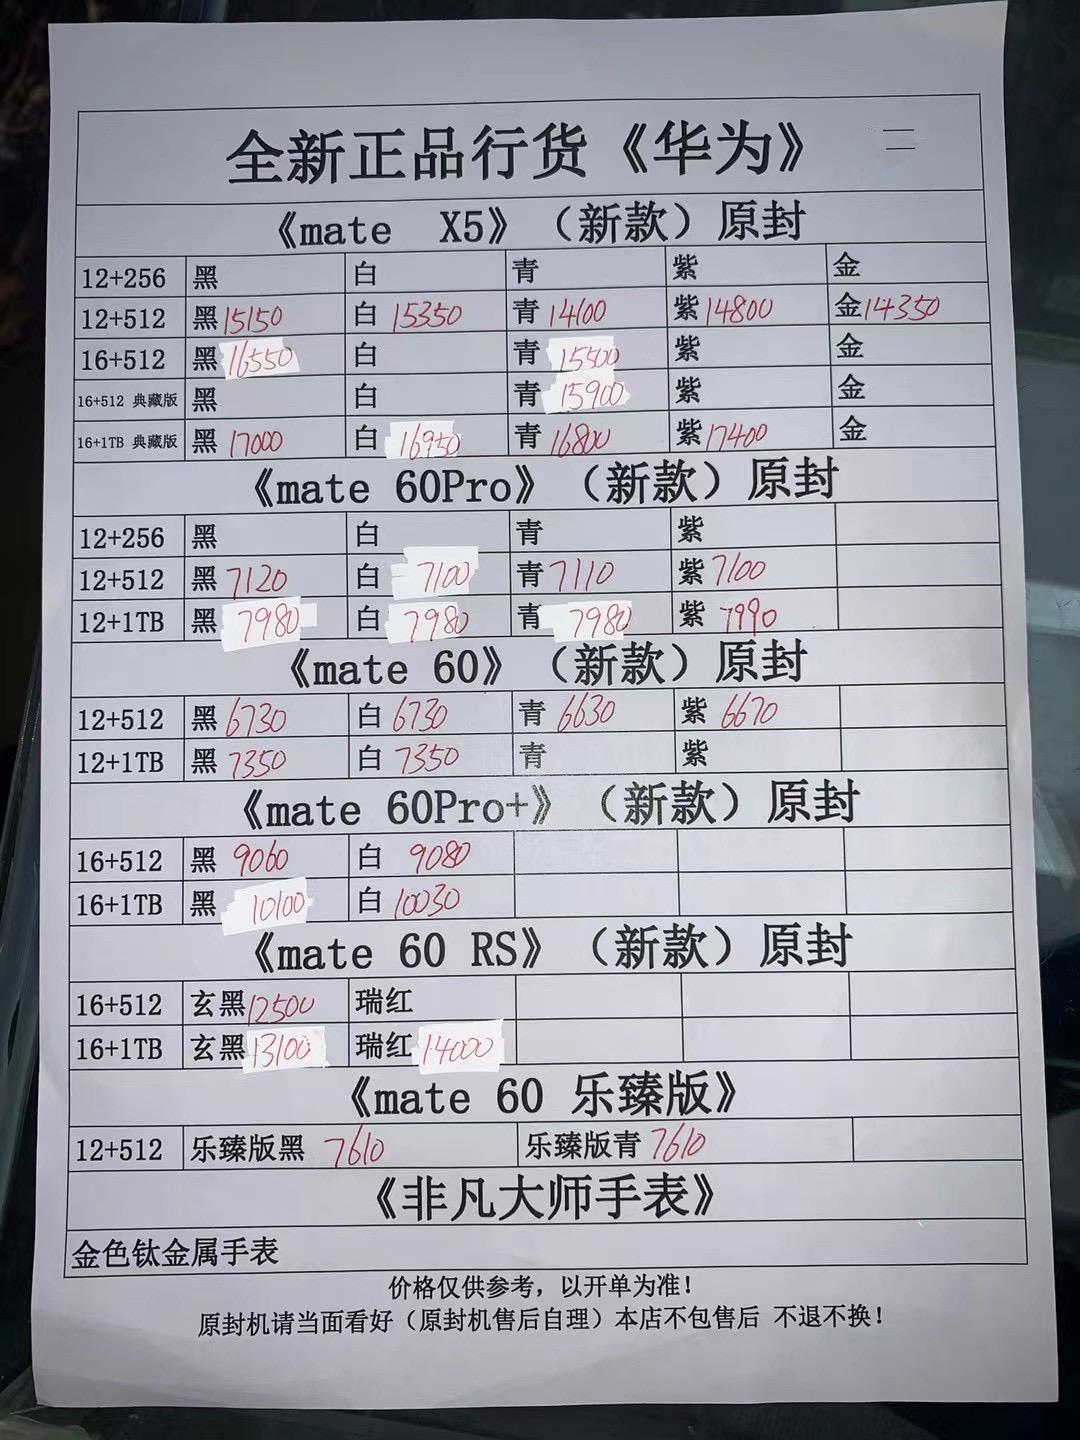 全新正品行货《华为》 二
《mate X5》（新款）原封
12+256 黑 白 青 紫 金
12+512 黑 15150 白 15350 青 14100 紫 14800 金 14350
16+512 黑 16550 白 青 15500 紫 金
16+512 典藏版 黑 白 青 15900 紫 金
16+1TB 典藏版 黑 17000 白 16950 青 16800 紫 17400 金
《mate 60Pro》（新款）原封
12+256 黑 白 青 紫
12+512 黑 7120 白 7100 青 7110 紫 7100
12+1TB 黑 7980 白 7980 青 7980 紫 7990
《mate 60》（新款）原封
12+512 黑 6730 白 6730 青 6630 紫 6670
12+1TB 黑 7350 白 7350 青 紫
《mate 60Pro+》（新款）原封
16+512 黑 9060 白 9080
16+1TB 黑 10100 白 10030
《mate 60 RS》（新款）原封
16+512 玄黑 12500 瑞红
16+1TB 玄黑 13100 瑞红 14000
《mate 60 乐臻版》
12+512 乐臻版黑 7610 乐臻版青 7610
《非凡大师手表》
金色钛金属手表
价格仅供参考，以开单为准！
原封机请当面看好（原封机售后自理）本店不包售后 不退不换！